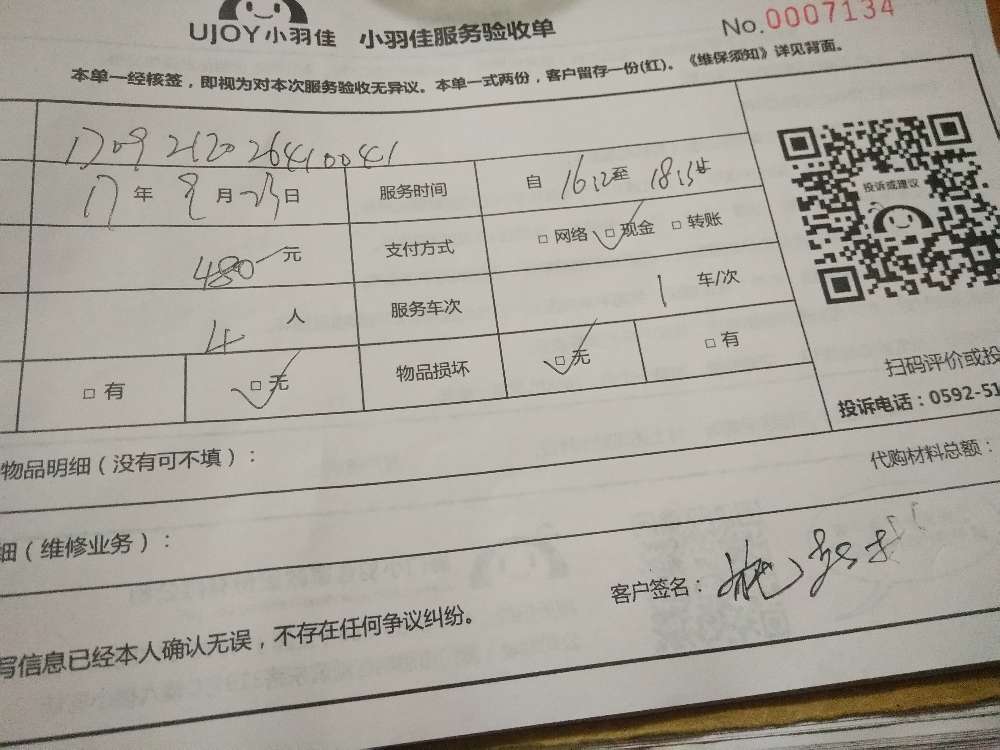 UJOY小羽佳 小羽佳服务验收单 No.0007134
本单一经核签，即视为对本次服务验收无异议。本单一式两份，客户留存一份(红)。《维保须知》详见背面。
年 月 日 服务时间 自 至
480 元 支付方式 □ 网络 □ 现金 □ 转账
4 人 服务车次 1 车/次
□ 有 □ 无 物品损坏 □ 无 □ 有
投诉或建议
扫码评价或投
投诉电话：0592-51
物品明细（没有可不填）：
代购材料总额：
细（维修业务）：
客户签名：
写信息已经本人确认无误，不存在任何争议纠纷。